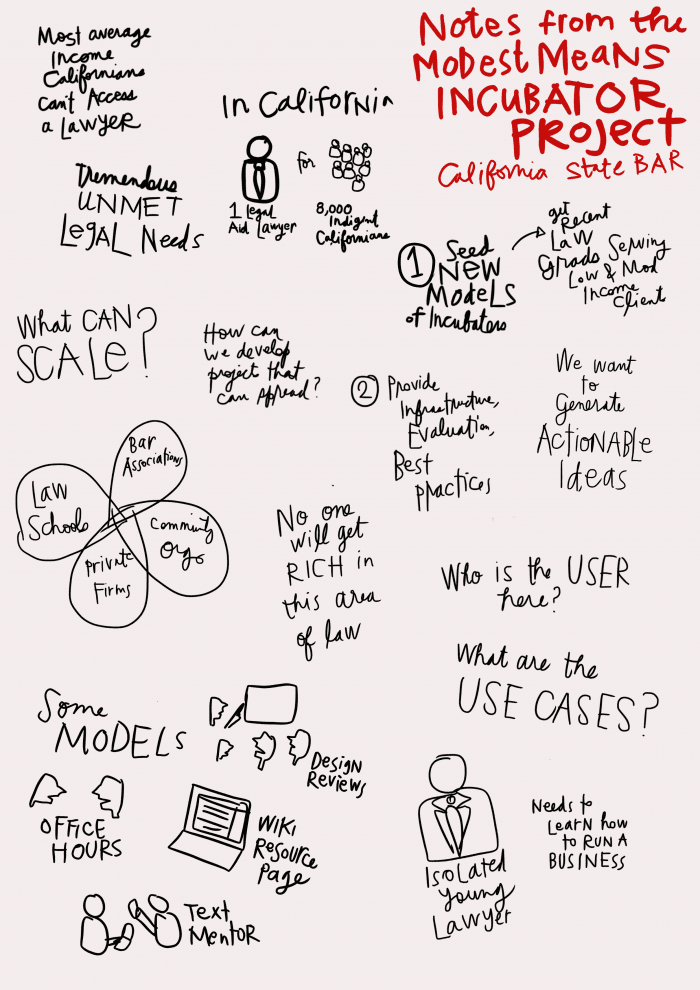 Notes from the
Modest Means
INCUBATOR
PROJECT
California State BAR
Most average
Income
Californians
Can't Access
a LAWYER
In California
1 legal
Aid Lawyer
for
8,000
Indigent
Californians
Tremendous
UNMET
LEGAL Needs
1 Seed
NEW
MODELS
of Incubators
get
Recent
Law
Grads Serving
Low & Mod
Income
Client
What CAN
SCALE?
How can
we develop
project that
can spread?
2 Provide
Infrastructure,
Evaluation,
Best
practices
We want
to
Generate
ACTIONABLE
Ideas
Bar
Associations
Law
Schools
Community
Orgs
Private
Firms
No one
will get
RICH in
this area
of law
Who is the USER
here?
What are the
USE CASES?
Some
MODELS
DESIGN
REVIEWS
OFFICE
HOURS
WIKI
Resource
Page
Text
Mentor
ISOLATED
young
Lawyer
Needs to
LEARN how
to RUN A
BUSINESS